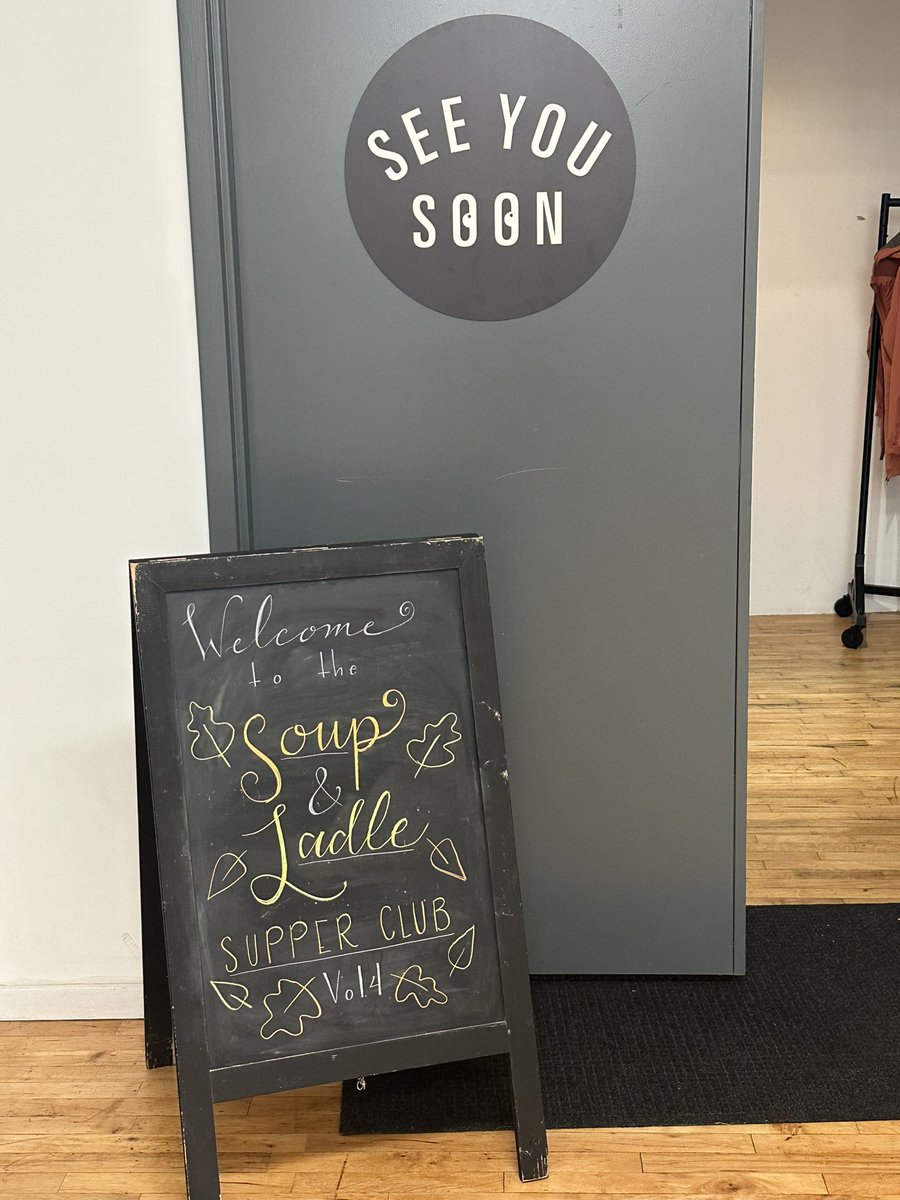 SEE YOU
SOON
Welcome
to the
Soup
&
Ladle
SUPPER CLUB
Vol.4